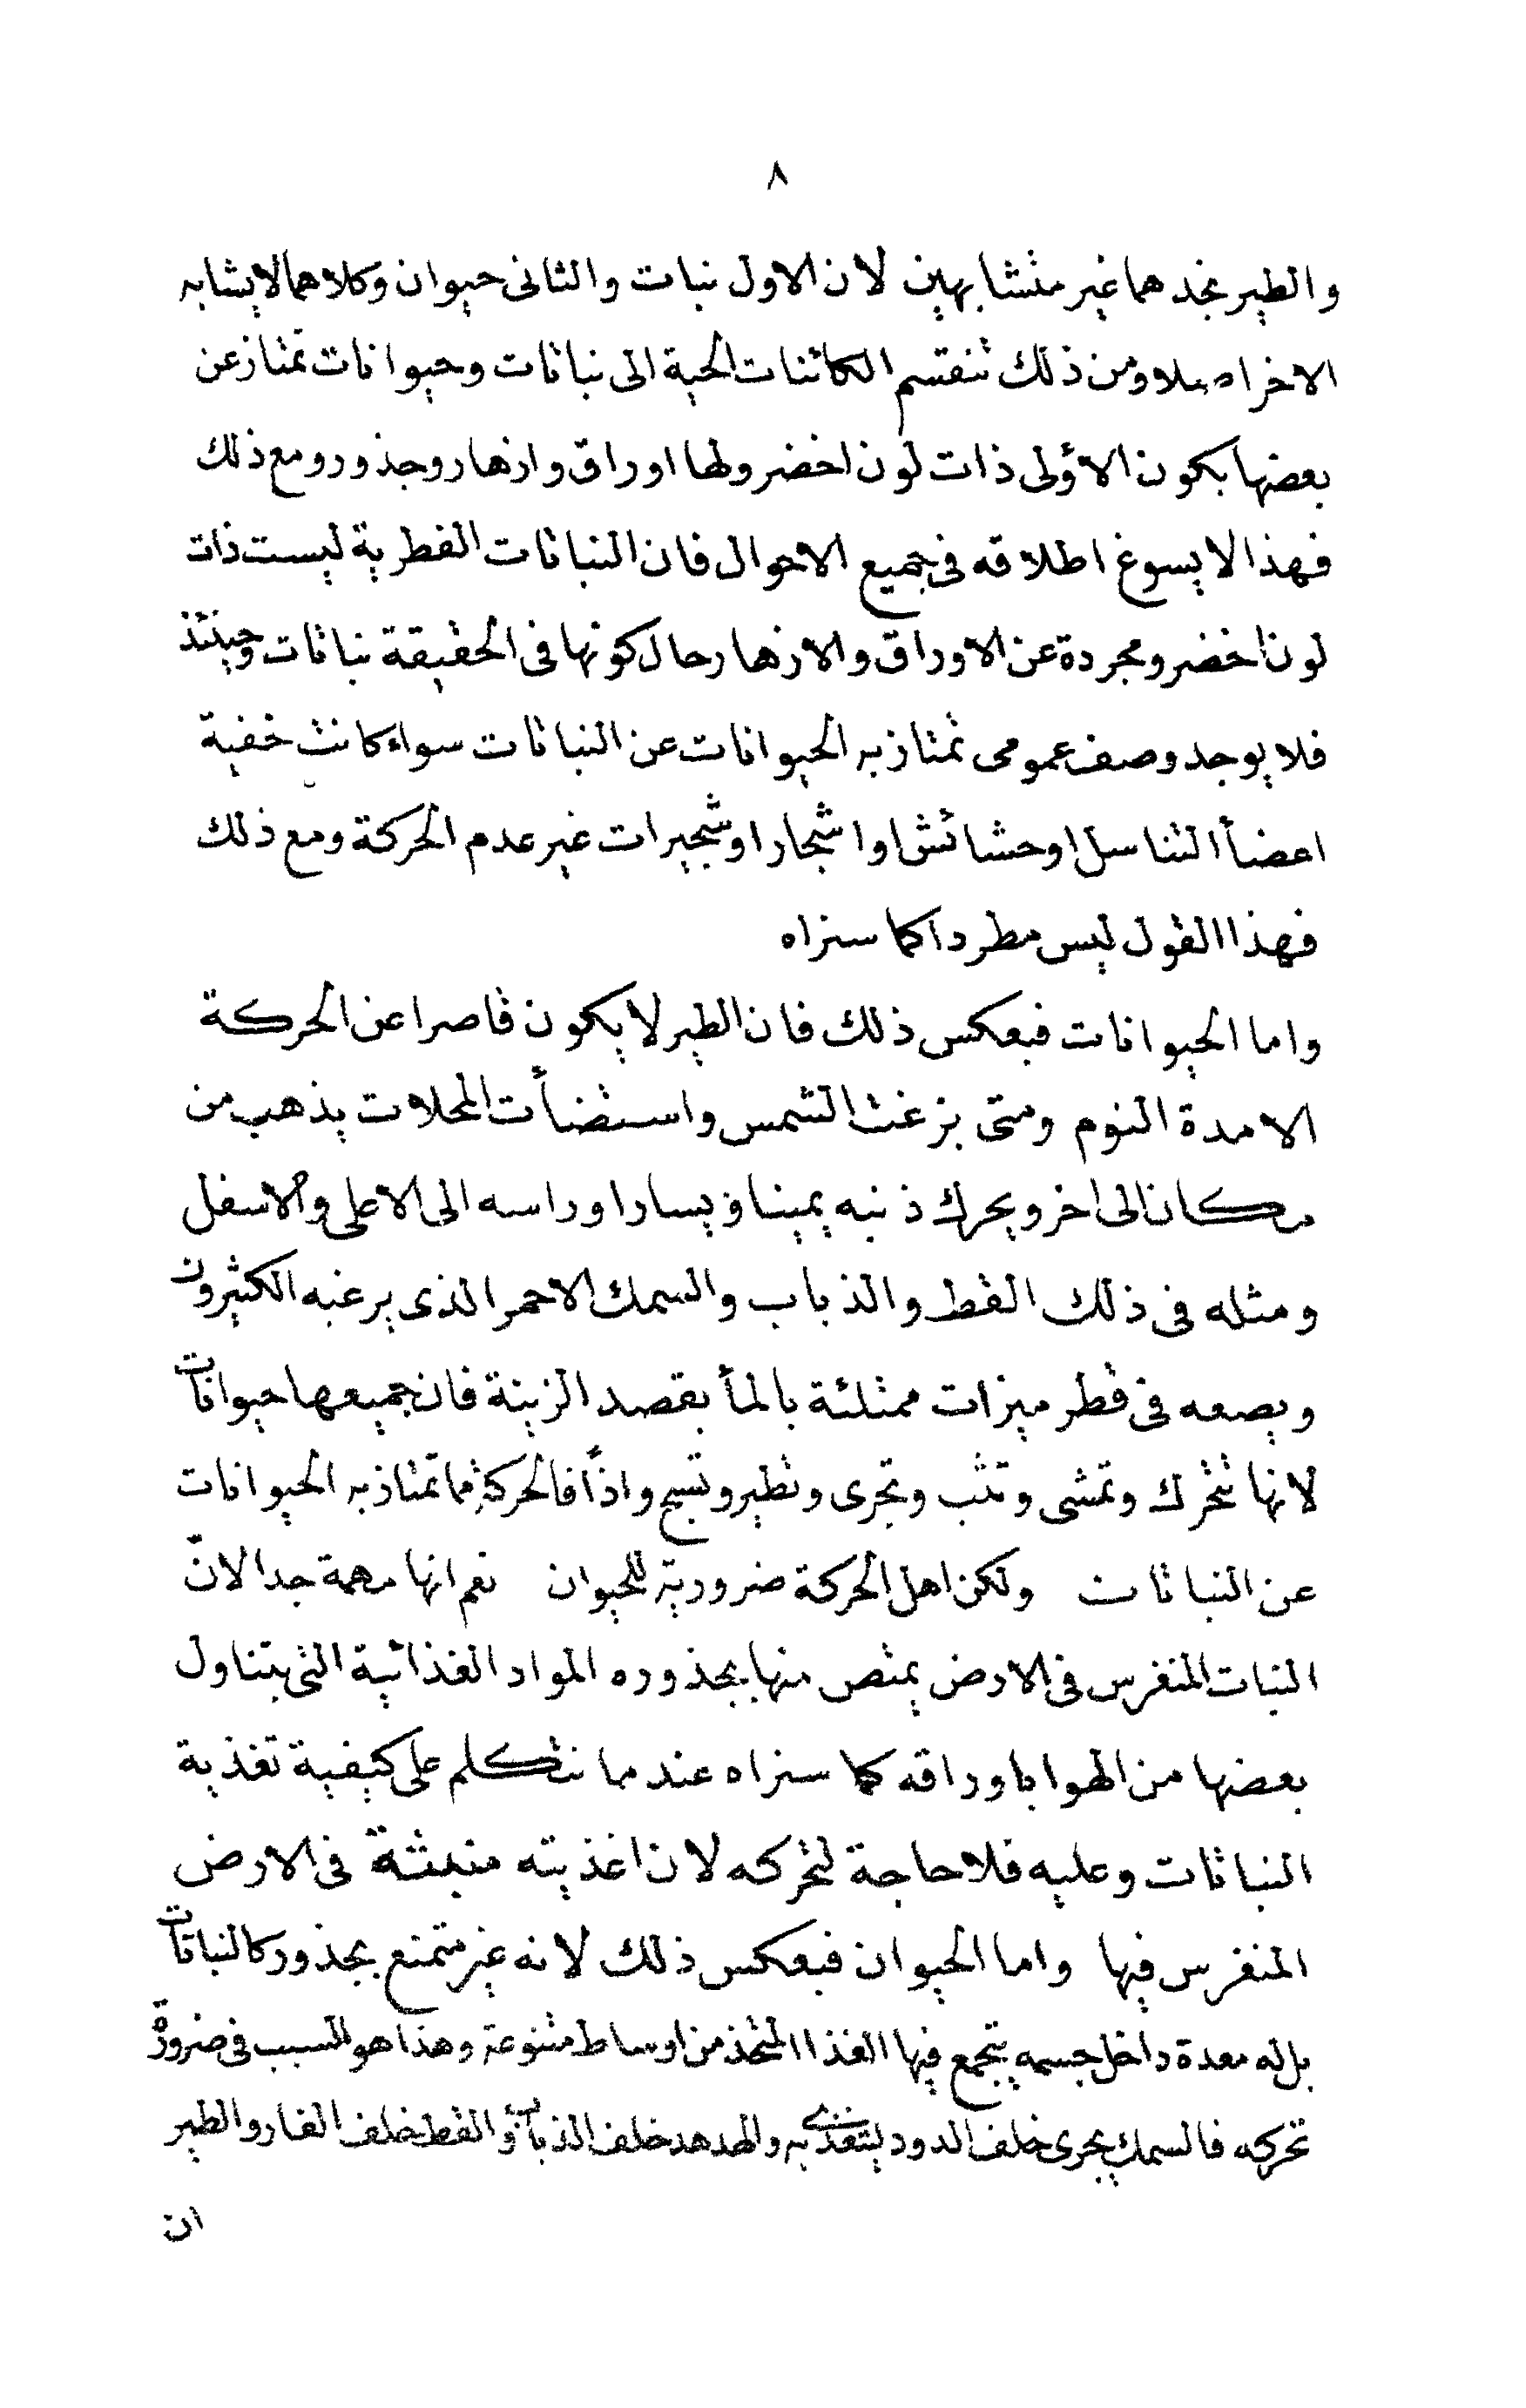 ٨
والطير نجدهما غير متشابهين لان الاول نبات والثانى حيوان وكلاهما لا يشابه
الاخر اصلا ومن ذلك تنقسم الكائنات الحية الى نباتات وحيوانات تمتاز عن
بعضها بكون الأولى ذات لون اخضر ولها اوراق وازهار وجذور ومع ذلك
فهذا لا يسوغ اطلاقه فى جميع الاحوال فان النباتات الفطرية ليست ذات
لون اخضر ومجردة عن الاوراق والازهار حال كونها فى الحقيقة نباتات وحينئذ
فلا يوجد وصف عمومى تمتاز به الحيوانات عن النباتات سواء كانت خفية
اعضأ التناسل او حشائش او اشجار او شجيرات غير عدم الحركة ومع ذلك
فهذا القول ليس مطردا كما سنراه
واما الحيوانات فبعكس ذلك فان الطير لا يكون قاصرا عن الحركة
الا مدة النوم ومتى بزغت الشمس واستضأت المحلات يذهب من
مكان الى اخر ويحرك ذنبه يمينا ويسارا وراسه الى الاعلى والاسفل
ومثله فى ذلك القط والذباب والسمك الاحمر الذى يرغبه الكثيرون
ويضعه فى قطرميزات ممتلئة بالمأ بقصد الزينة فان جميعها حيوانات
لانها تتحرك وتمشى وتثب وتجرى وتطير وتسبح واذًا فالحركة مما تمتاز به الحيوانات
عن النباتات ولكن اهل الحركة ضرورية للحيوان نعم انها مهمة جدا لانّ
النبات المنغرس فى الارض يمتص منها بجذوره المواد الغذائية التى يتناول
بعضها من الهوا باوراقه كما سنراه عندما نتكلم على كيفية تغذية
النباتات وعليه فلا حاجة لتحركه لان اغذيته منبثة فى الارض
المنغرس فيها واما الحيوان فبعكس ذلك لانه غير متمتع بجذور كالنباتات
بل له معدة داخل جسمه يتجمع فيها الغذا المتخذ من اوساط متنوعة وهذا هو السبب فى ضرورة
تحركه فالسمك يجرى خلف الدود ليتغذى به والهدهد خلف الذباب والقط خلف الفار والطير
ان